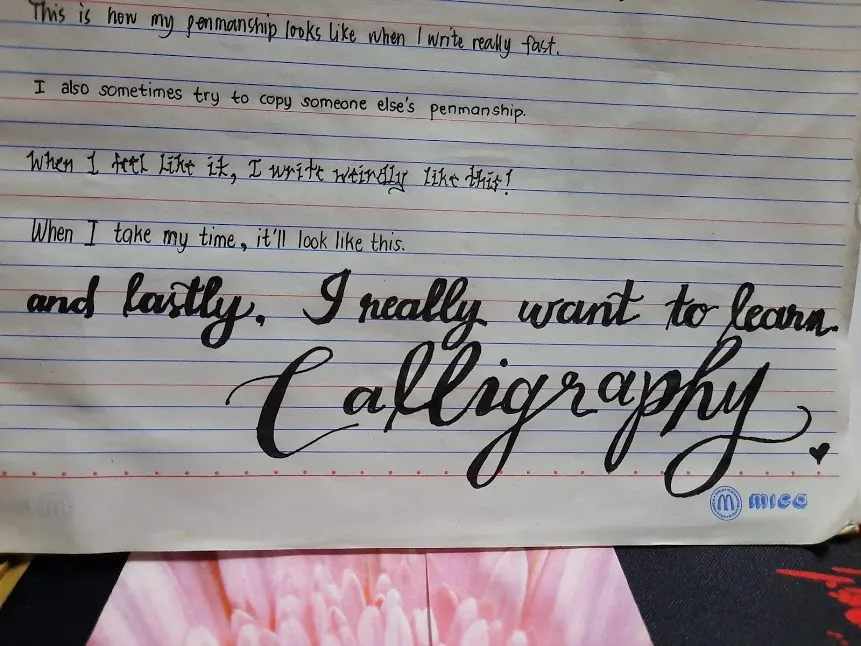 This is how my penmanship looks like when I write really fast.
I also sometimes try to copy someone else's penmanship.
When I feel like it, I write weirdly like this!
When I take my time, it'll look like this.
and lastly, I really want to learn
Calligraphy
MICC